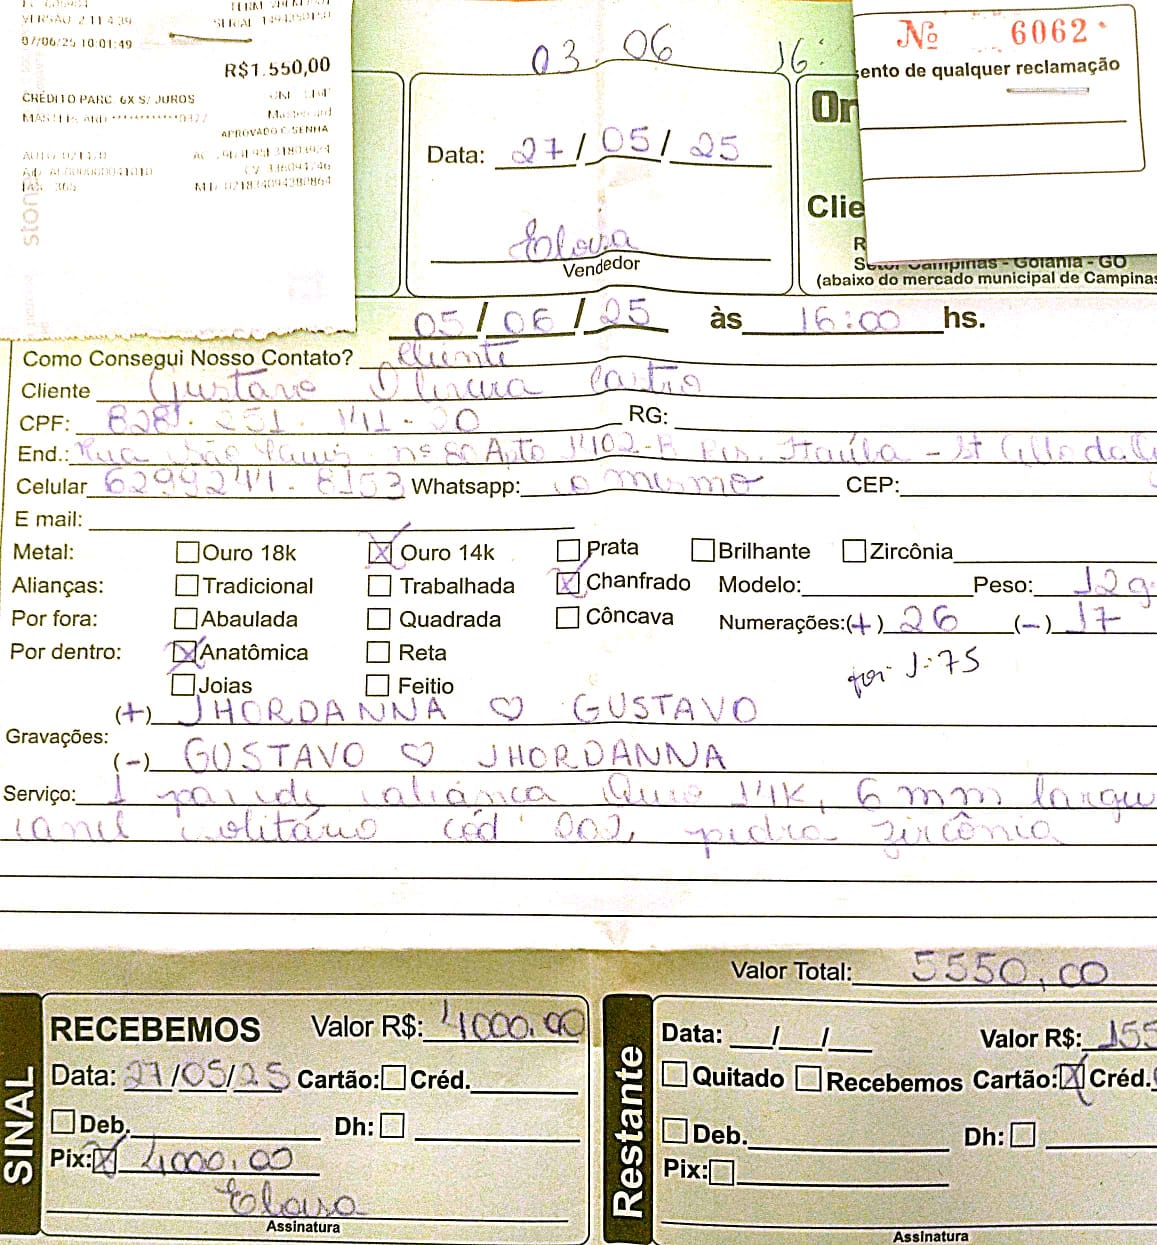 VERSÃO 2.11.4.39
07/06/25 10:01:49
R$1.550,00
CRÉDITO PARC. 6X S/ JUROS
APROVADO C/SENHA
stone
Nº 6062
ento de qualquer reclamação
03 06 16:
Data: 27/05/25
Or
Clie
Vendedor
Setor Campinas - Goiânia - GO
(abaixo do mercado municipal de Campinas
05/06/25 às 16:00 hs.
Como Consegui Nosso Contato? Cliente
Cliente Gustavo Castro
CPF: RG:
End.: Rua São nº 80 Apto
Celular Whatsapp: o mesmo CEP:
E mail:
Metal: Ouro 18k Ouro 14k Prata Brilhante Zircônia
Alianças: Tradicional Trabalhada Chanfrado Modelo: Peso: 12g
Por fora: Abaulada Quadrada Côncava Numerações:(+) 26 (-) 17
Por dentro: Anatômica Reta
foi
Joias Feitio
(+) JHORDANNA ♡ GUSTAVO
Gravações:
(-) GUSTAVO ♡ JHORDANNA
Serviço: 1 par de aliança Ouro 14K, 6 mm largu
anel solitário cód 202, pedra zircônia
Valor Total: 5550,00
SINAL
RECEBEMOS Valor R$: 4000.00
Data: 27/05/25 Cartão: Créd.
Deb. Dh:
Pix: 4000.00
Assinatura
Restante
Data: / / Valor R$: 155
Quitado Recebemos Cartão: Créd.
Deb. Dh:
Pix:
Assinatura